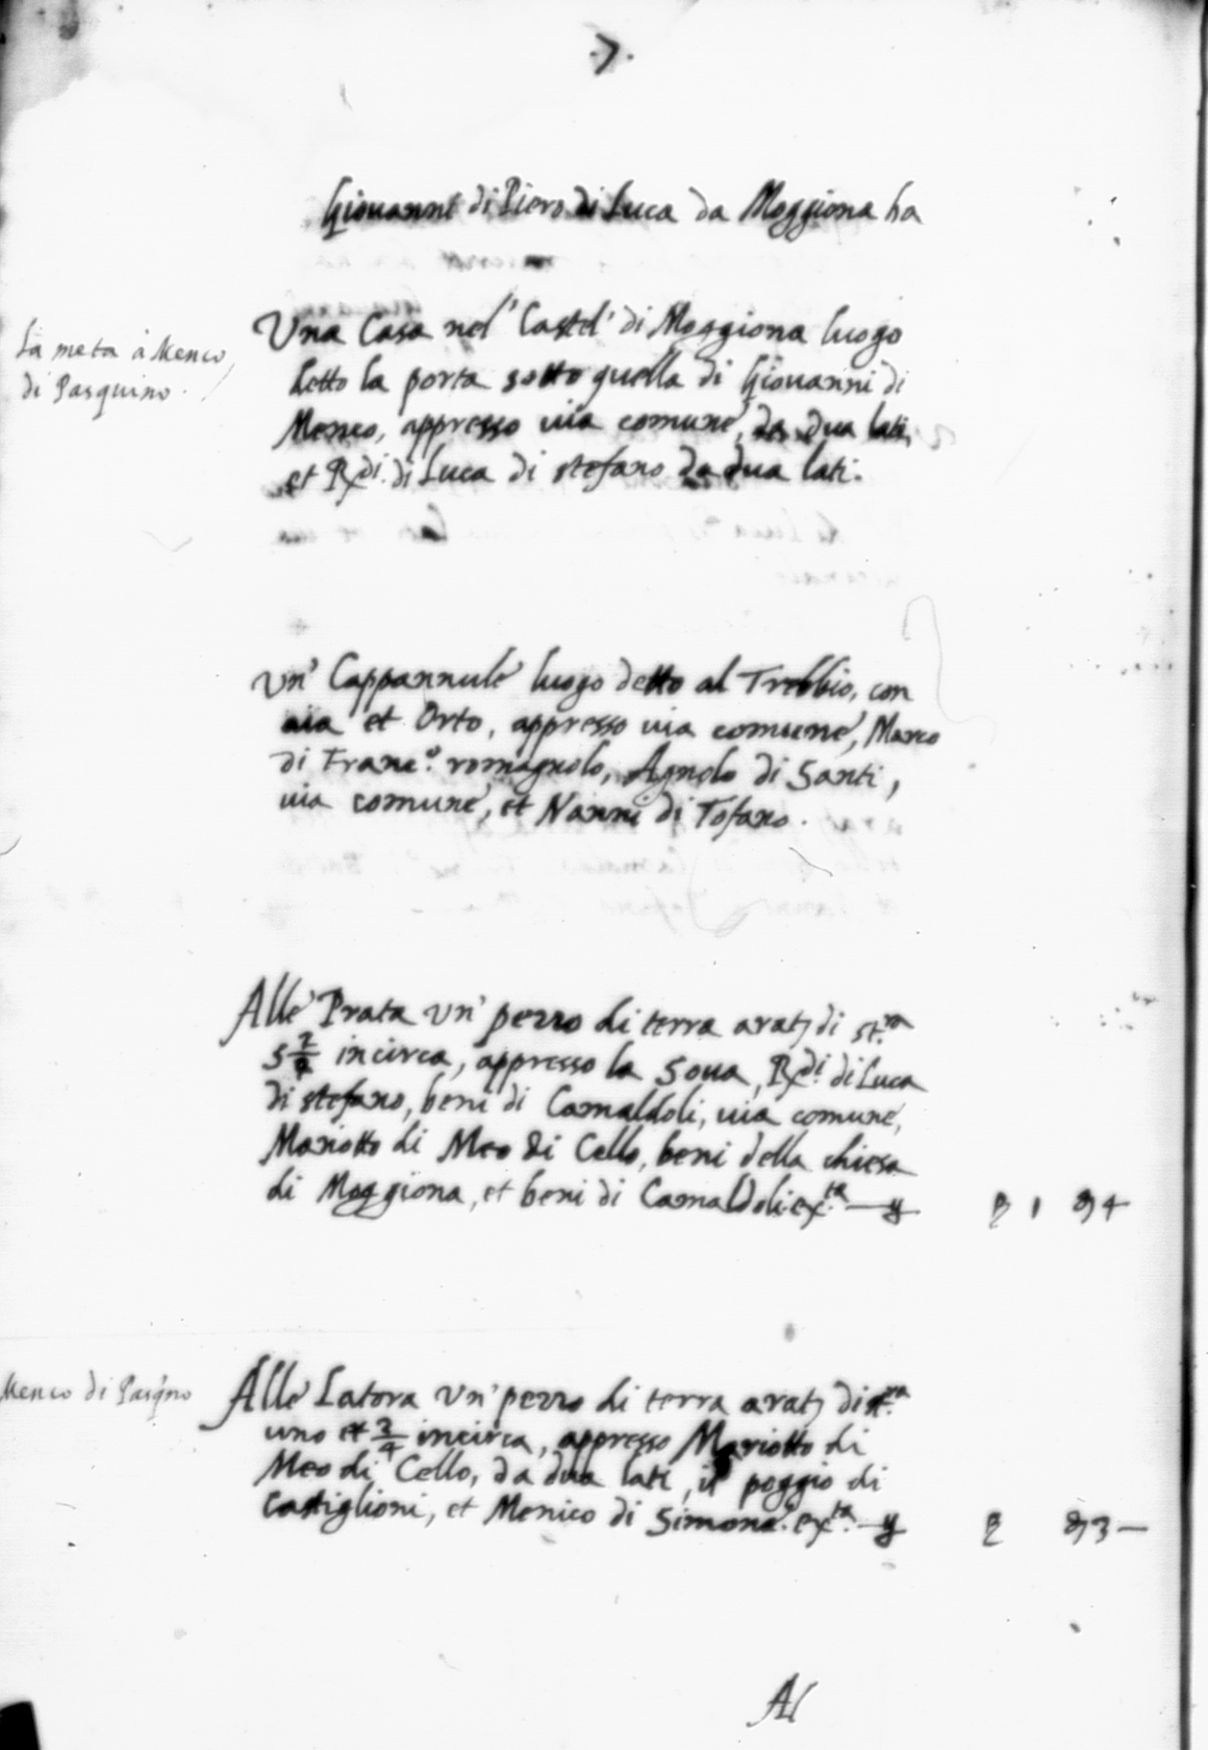 .7.
Giovanni di Piero di Luca da Moggiona ha
La meta à Menco
di Pasquino.
Una Casa nel' Castel' di Moggiona luogo
detto la porta sotto quella di Giovanni di
Menco, appresso via comune, da dua lati,
et Rxdi. di Luca di stefano da dua lati.
Un' Cappannule luogo detto al Trebbio, con
aia et Orto, appresso via comune, Marco
di Franc.o romagnolo, Agnolo di Santi,
via comune, et Nanni di Tofano.
Alle Prata un' pezzo di terra arat, di st.ra
5 incirca, appresso la Sova, Rxdi. di Luca
di stefano, beni di Camaldoli, via comune,
Mariotto di Meo di Cello, beni della chiesa
di Moggiona, et beni di Camaldoli. ex.ta
Menco di Pasqno
Alle Latora un' pezzo di terra arat, di st.ra
uno et 3/4 incirca, appresso Mariotto di
Meo di Cello, da dua lati, il poggio di
Castiglioni, et Menico di Simone. ex.ta
Al